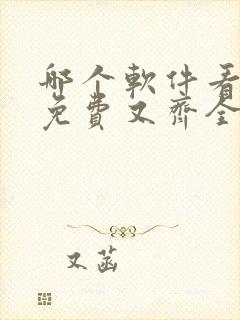 哪个软件看
免费又齐全
又菡